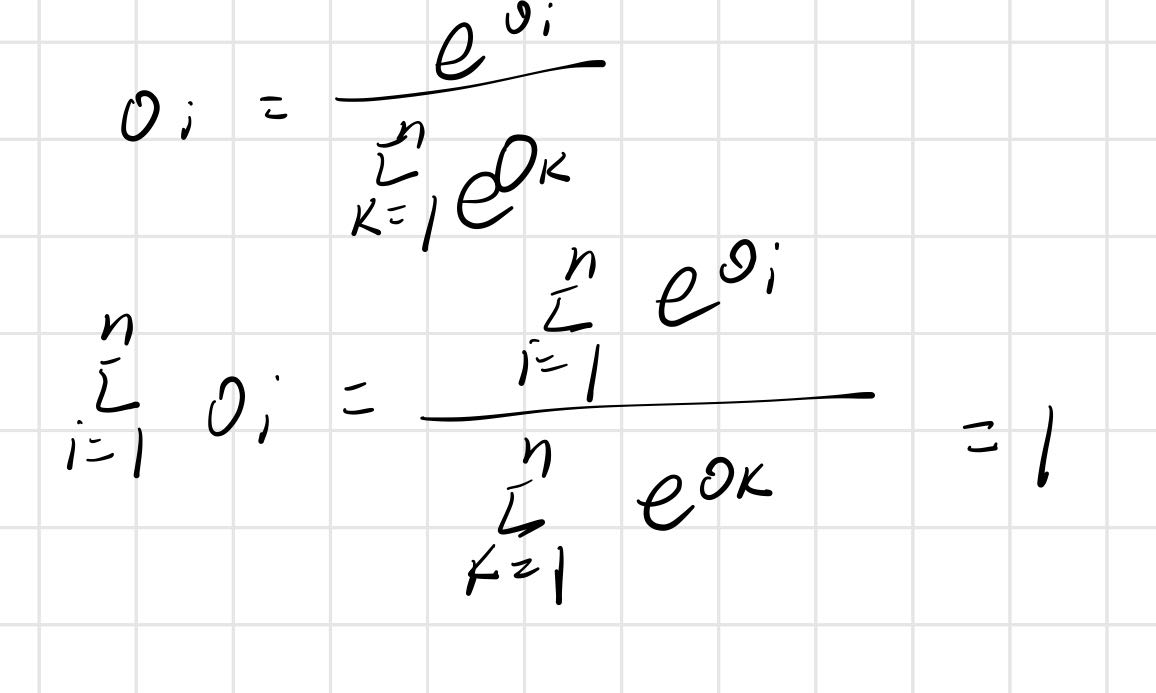 o_i = \frac{e^{o_i}}{\sum_{k=1}^{n} e^{o_k}}
\sum_{i=1}^{n} o_i = \frac{\sum_{i=1}^{n} e^{o_i}}{\sum_{k=1}^{n} e^{o_k}} = 1